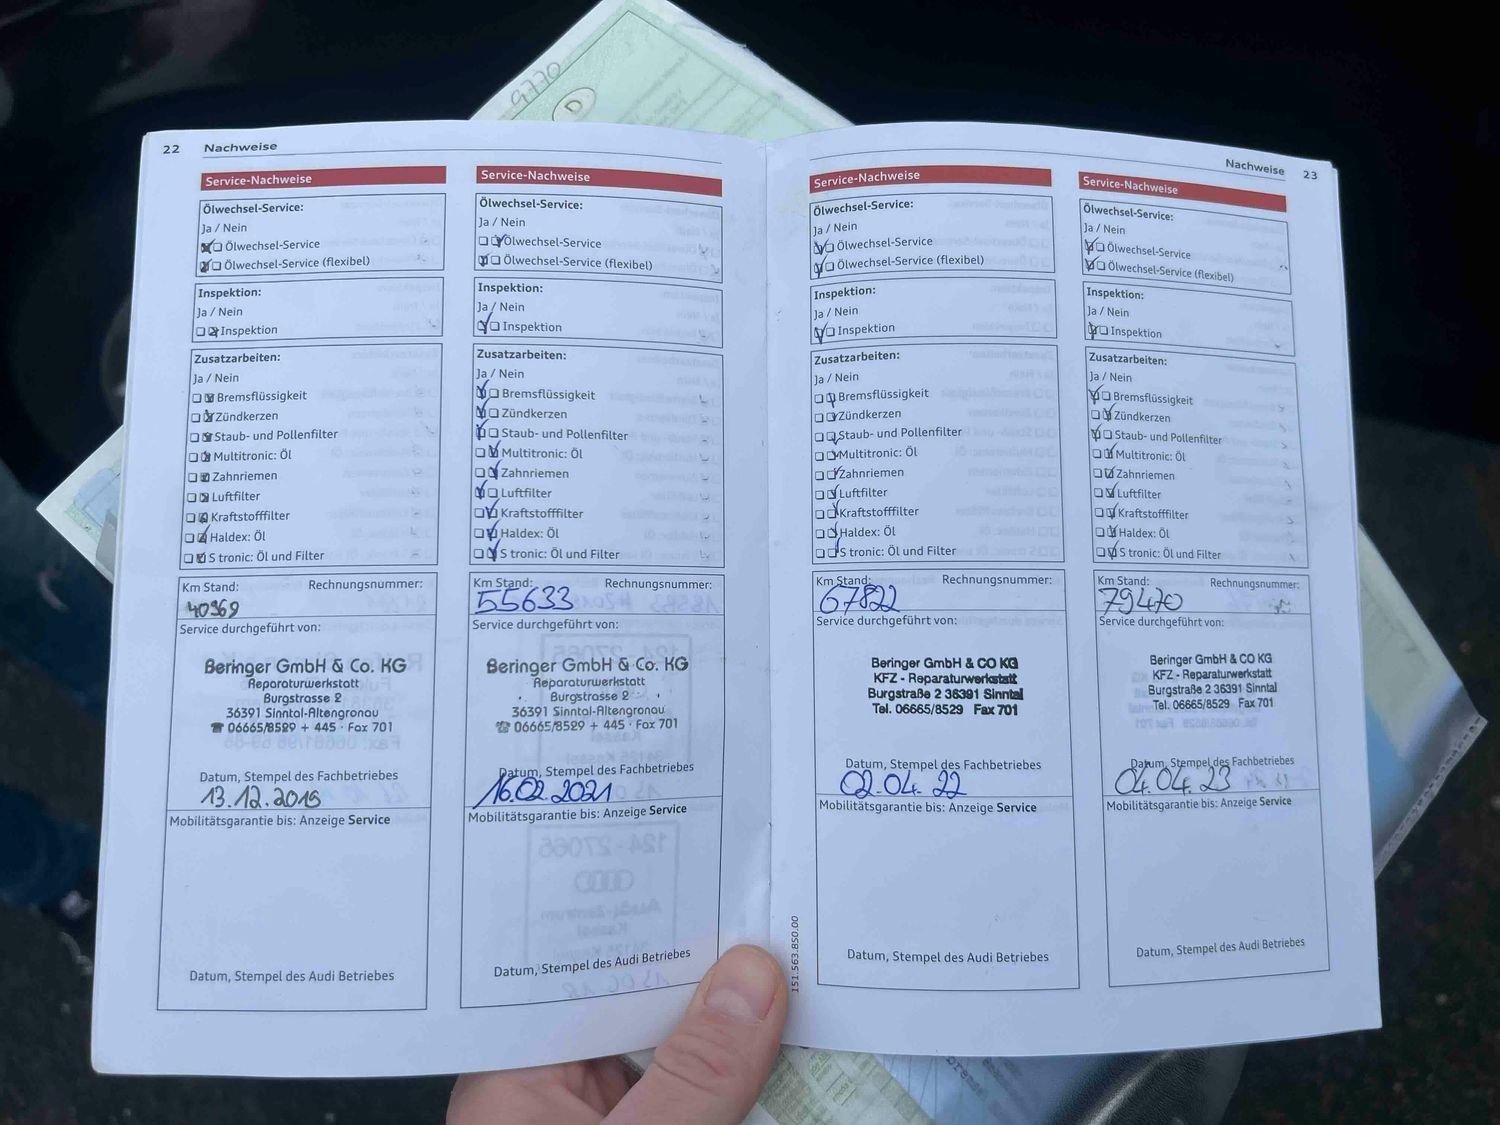 9770
D
22 Nachweise
Service-Nachweise
Ölwechsel-Service:
Ja / Nein
Ölwechsel-Service
Ölwechsel-Service (flexibel)
Inspektion:
Ja / Nein
Inspektion
Zusatzarbeiten:
Ja / Nein
Bremsflüssigkeit
Zündkerzen
Staub- und Pollenfilter
Multitronic: Öl
Zahnriemen
Luftfilter
Kraftstofffilter
Haldex: Öl
S tronic: Öl und Filter
Km Stand: Rechnungsnummer:
40969
Service durchgeführt von:
Beringer GmbH & Co. KG
Reparaturwerkstatt
Burgstrasse 2
36391 Sinntal-Altengronau
☎ 06665/8529 + 445 · Fax 701
Datum, Stempel des Fachbetriebes
13.12.2018
Mobilitätsgarantie bis: Anzeige Service
Datum, Stempel des Audi Betriebes
Service-Nachweise
Ölwechsel-Service:
Ja / Nein
Ölwechsel-Service
Ölwechsel-Service (flexibel)
Inspektion:
Ja / Nein
Inspektion
Zusatzarbeiten:
Ja / Nein
Bremsflüssigkeit
Zündkerzen
Staub- und Pollenfilter
Multitronic: Öl
Zahnriemen
Luftfilter
Kraftstofffilter
Haldex: Öl
S tronic: Öl und Filter
Km Stand: Rechnungsnummer:
55633
Service durchgeführt von:
Beringer GmbH & Co. KG
Reparaturwerkstatt
Burgstrasse 2
36391 Sinntal-Altengronau
☎ 06665/8529 + 445 · Fax 701
Datum, Stempel des Fachbetriebes
16.02.2021
Mobilitätsgarantie bis: Anzeige Service
Datum, Stempel des Audi Betriebes
Nachweise 23
Service-Nachweise
Ölwechsel-Service:
Ja / Nein
Ölwechsel-Service
Ölwechsel-Service (flexibel)
Inspektion:
Ja / Nein
Inspektion
Zusatzarbeiten:
Ja / Nein
Bremsflüssigkeit
Zündkerzen
Staub- und Pollenfilter
Multitronic: Öl
Zahnriemen
Luftfilter
Kraftstofffilter
Haldex: Öl
S tronic: Öl und Filter
Km Stand: Rechnungsnummer:
67822
Service durchgeführt von:
Beringer GmbH & CO KG
KFZ - Reparaturwerkstatt
Burgstraße 2 36391 Sinntal
Tel. 06665/8529 Fax 701
Datum, Stempel des Fachbetriebes
02.04.22
Mobilitätsgarantie bis: Anzeige Service
Datum, Stempel des Audi Betriebes
151.563.850.00
Service-Nachweise
Ölwechsel-Service:
Ja / Nein
Ölwechsel-Service
Ölwechsel-Service (flexibel)
Inspektion:
Ja / Nein
Inspektion
Zusatzarbeiten:
Ja / Nein
Bremsflüssigkeit
Zündkerzen
Staub- und Pollenfilter
Multitronic: Öl
Zahnriemen
Luftfilter
Kraftstofffilter
Haldex: Öl
S tronic: Öl und Filter
Km Stand: Rechnungsnummer:
79470
Service durchgeführt von:
Beringer GmbH & CO KG
KFZ - Reparaturwerkstatt
Burgstraße 2 36391 Sinntal
Tel. 06665/8529 Fax 701
Datum, Stempel des Fachbetriebes
04.04.23
Mobilitätsgarantie bis: Anzeige Service
Datum, Stempel des Audi Betriebes